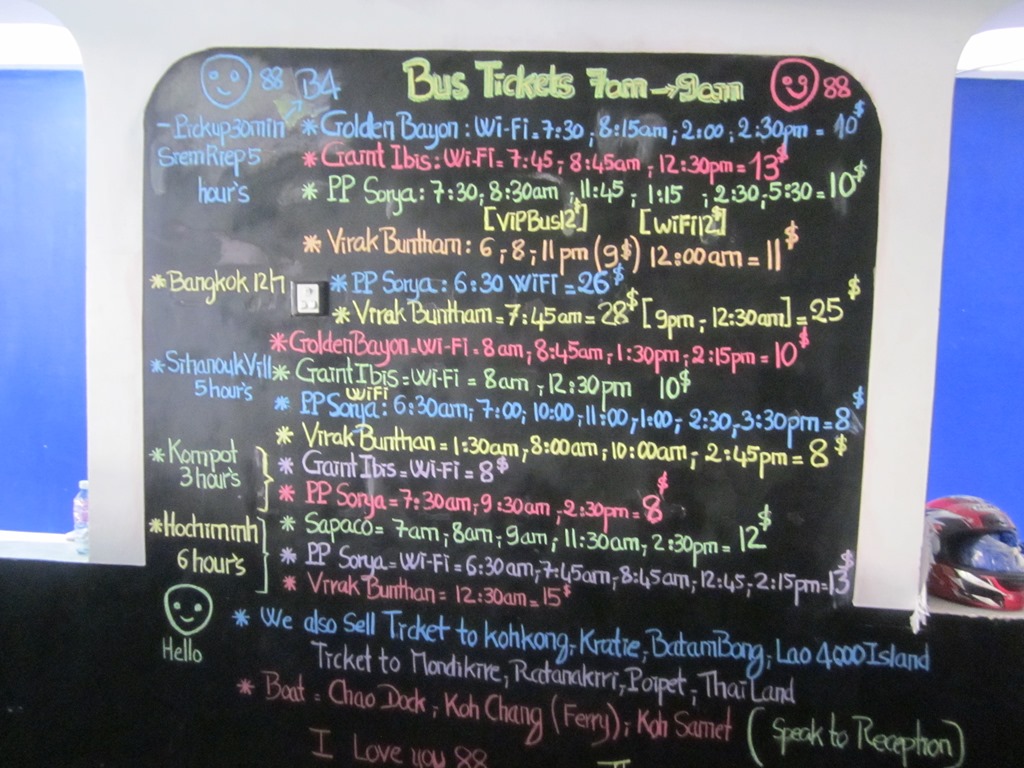 88 B4 Bus Tickets 7am → 9am 88
- Pickup 30min * Golden Bayon : Wi-Fi = 7:30 ; 8:15am ; 2:00 ; 2:30pm = 10$
SremRiep 5 * Gaint Ibis : Wi-Fi = 7:45 ; 8:45am ; 12:30pm = 13$
hour's * PP Sorya : 7:30 ; 8:30am ; 11:45 ; 1:15 ; 2:30 ; 5:30 = 10$
[VIPBus12$] [WiFi12$]
* Virak Buntham : 6 ; 8 ; 11pm (9$) 12:00am = 11$
* Bangkok 12h * PP Sorya : 6:30 WIFI = 26$
* Virak Buntham = 7:45am = 28$ [9pm ; 12:30am] = 25$
* GoldenBayon = Wi-Fi = 8am ; 8:45am ; 1:30pm ; 2:15pm = 10$
* SihanoukVill * GaintIbis = Wi-Fi = 8am ; 12:30pm 10$
5hour's WiFi
* PP Sorya : 6:30am ; 7:00 ; 10:00 ; 11:00 ; 1:00 ; 2:30 ; 3:30pm = 8$
* Virak Bunthan = 1:30am ; 8:00am ; 10:00am ; 2:45pm = 8$
* Kompot * Gaint Ibis = Wi-Fi = 8$
3hour's * PP Sorya = 7:30am ; 9:30am ; 2:30pm = 8$
* Hochimmh * Sapaco = 7am ; 8am ; 9am ; 11:30am ; 2:30pm = 12$
6 hour's * PP Sorya = Wi-Fi = 6:30am ; 7:45am ; 8:45am ; 12:45 ; 2:15pm = 13$
* Virak Bunthan = 12:30am = 15$
Hello * We also Sell Ticket to kohkong ; Kratie ; BatamBong ; Lao 4000 Island
Ticket to Mondikire ; Ratanakiri ; Poipet ; ThaiLand
* Boat = Chao Dock ; Koh Chang (Ferry) ; Koh Samet (Speak to Reception)
I Love you 88